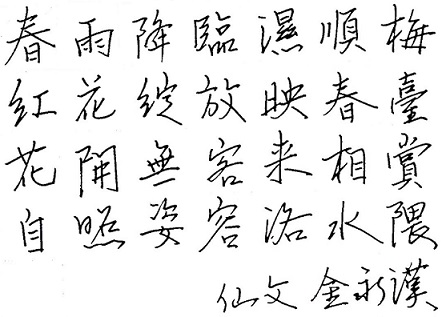 春雨降臨濕順梅
紅花綻放映春臺
花開無客来相賞
自照姿容洛水隈
仙文 金永漢